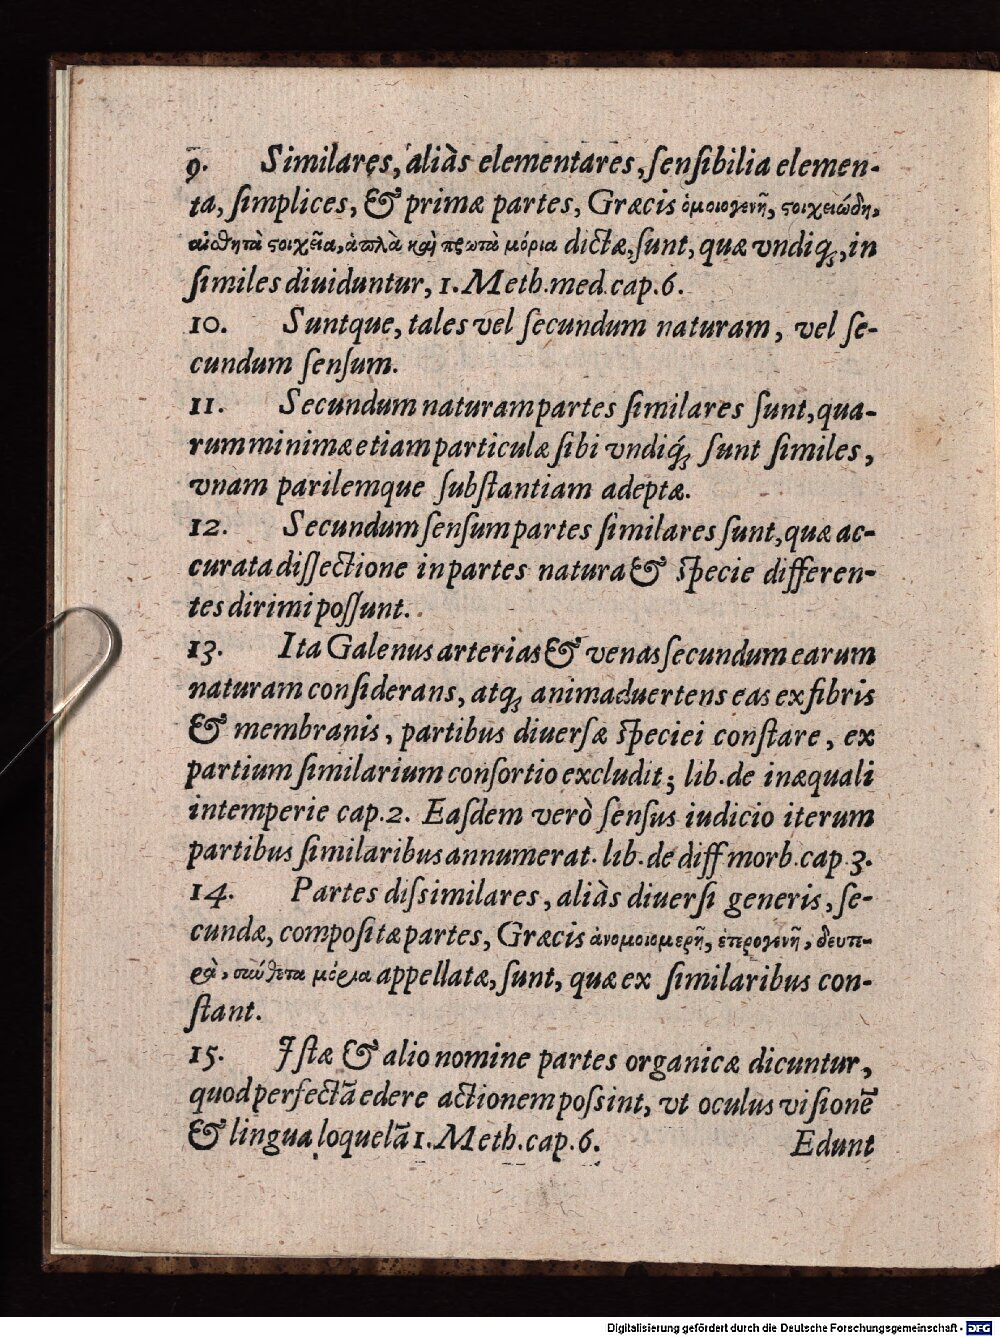 9. Similares, aliàs elementares, ſenſibilia elemen-
ta, ſimplices, & primæ partes, Græcis ὁμοιογενῆ, ϛοιχειώδη,
αἰσθητὰ ϛοιχεῖα, ἁπλὰ καὶ πρωτὰ μόρια dictæ, ſunt, quæ vndiq́ꝫ, in
ſimiles diuiduntur, 1. Meth. med. cap. 6.
10. Suntque, tales vel ſecundum naturam, vel ſe-
cundum ſenſum.
11. Secundum naturam partes ſimilares ſunt, qua-
rum minimæ etiam particulæ ſibi vndiq́ꝫ ſunt ſimiles,
vnam parilemque ſubſtantiam adeptæ.
12. Secundum ſenſum partes ſimilares ſunt, quæ ac-
curata diſſectione in partes natura & ſpecie differen-
tes dirimi poſſunt.
13. Ita Galenus arterias & venas ſecundum earum
naturam conſiderans, atqꝫ animaduertens eas ex fibris
& membranis, partibus diuerſæ ſpeciei conſtare, ex
partium ſimilarium conſortio excludit; lib. de inæquali
intemperie cap. 2. Eaſdem verò ſenſus iudicio iterum
partibus ſimilaribus annumerat. lib. de diff morb. cap 3.
14. Partes diſsimilares, aliàs diuerſi generis, ſe-
cundæ, compoſitæ partes, Græcis ἀνομοιομερῆ, ἑτερογενῆ, δευτε-
ρὰ, σιώθετα μόρια appellatæ, ſunt, quæ ex ſimilaribus con-
ſtant.
15. Iſtæ & alio nomine partes organicæ dicuntur,
quod perfectã edere actionem poſsint, vt oculus viſionē
& lingua loquelã 1. Meth. cap. 6. Edunt
Digitalisierung gefördert durch die Deutsche Forschungsgemeinschaft - DFG